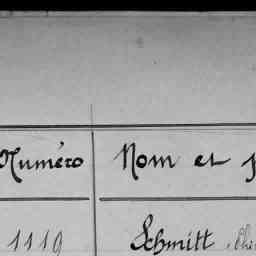 Numéro Nom et
1119 Schmitt,